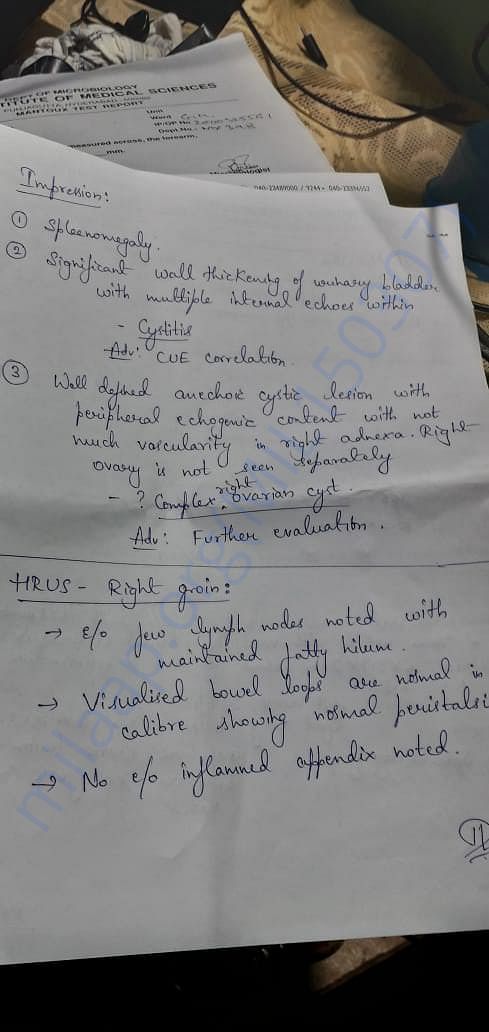 OF MICROBIOLOGY
TITUTE OF MEDICAL SCIENCES
MANTOUX TEST REPORT
Unit
Ward
IP/OP No
Dept.No.:
measured across, the forearm.
mm.
040-23489000 / 9244
Impression:
① Spleenomegaly.
② Significant wall thickening of urinary bladder
with multiple internal echoes within
- Cystitis
Adv: CUE correlation.
③ Well defined anechoic cystic lesion with
peripheral echogenic content with not
much vascularity in right adnexa. Right
ovary is not seen separately
- ? Complex right ovarian cyst.
Adv: Further evaluation.
HRUS - Right groin:
→ E/o few lymph nodes noted with
maintained fatty hilum.
→ Visualised bowel loops are normal in
calibre showing normal peristalsi
→ No e/o inflammed appendix noted.